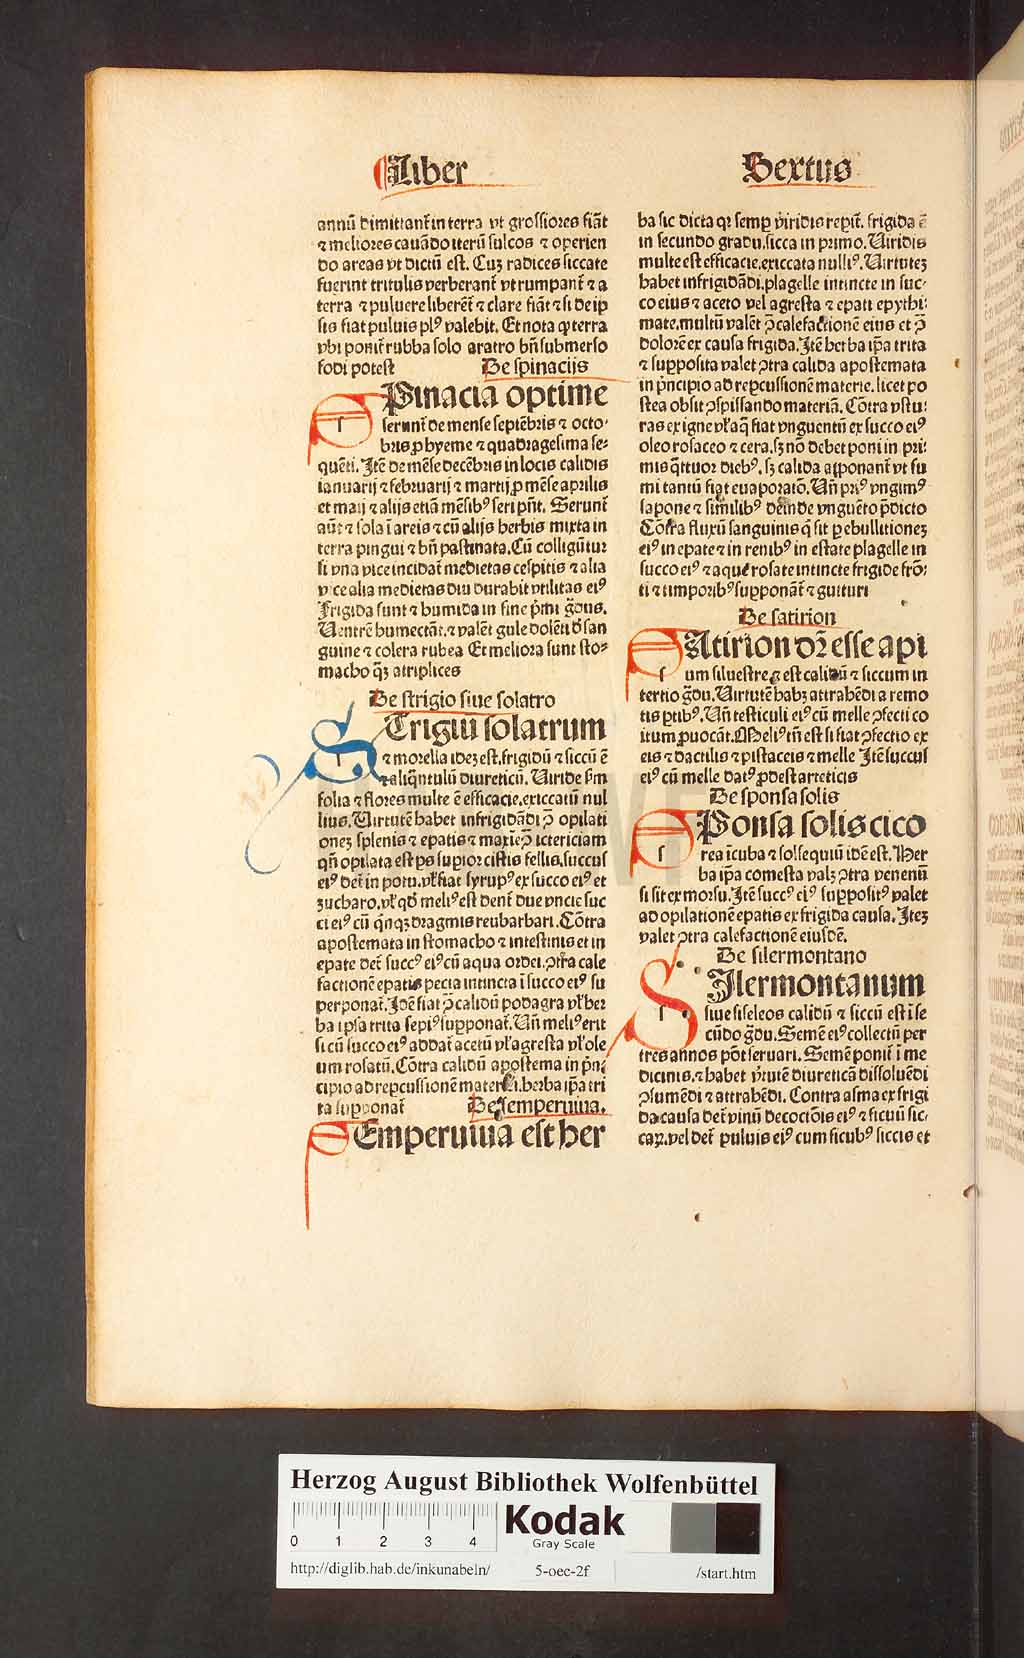 Liber
Sextus
annū dimittant̄ in terra vt grossiores fiāt
⁊ meliores cauādo iterū sulcos ⁊ operien
do areas vt dictū est. Cuꝫ radices siccate
fuerint tritulis verberant̄ vt rumpant̄ ⁊ a
terra ⁊ puluere liberēt̄ ⁊ clare fiāt ⁊ si de ip
sis fiat puluis plꝰ valebit. Et nota ꝙ terra
vbi ponit̄ rubba solo aratro bn̄ submerso
fodi potest
De spinacijs
SPinacia optime
serunt̄ de mense septēbris ⁊ octo-
bris ꝓ hyeme ⁊ quadragesima se-
quēti. Itē de mēse decēbris in locis calidis
ianuarij ⁊ februarij ⁊ martij ꝓ mēse aprilis
et maij ⁊ alijs etiā mēsibꝰ seri pn̄t. Serunt̄
aūt ⁊ sola ī areis ⁊ cū alijs herbis mixta in
terra pingui ⁊ bn̄ pastinata. Cū colligūtur
si vna vice incidat̄ medietas cespitis ⁊ alia
vice alia medietas diu durabit vtilitas eiꝰ
Frigida sunt ⁊ humida in fine p̄mi gd̄us.
Ventrē humectāt. ⁊ valēt gule dolēti d̄ san
guine ⁊ colera rubea Et meliora sunt sto-
macho q̄ꝫ atriplices
De strigio siue solatro
STrigiū solatrum
⁊ morella ideꝫ est. frigidū ⁊ siccū ē
⁊ aliq̄ntulū diureticū. Viride s̄m
folia ⁊ flores multe ē efficacie. exiccatū nul
lius. Virtutē habet infrigidādi ꝯ̄ opilati
oneꝫ splenis ⁊ epatis ⁊ maxie ꝯ̄ ictericiam
qn̄ opilata est ps supior cistis fellis. succus
eiꝰ det̄ in potu. vl̓ fiat syrupꝰ ex succo eiꝰ et
zucharo. vl̓ qd̄ meliꝰ est dent̄ due vncie suc
ci eiꝰ cū qn̄qꝫ dragmis reubarbari. Cōtra
apostemata in stomacho ⁊ intestinis et in
epate det̄ succꝰ eiꝰ cū aqua ordei. ꝯtra cale
factionē epatis pecia intincta ī succo eiꝰ su
perponat̄. Idē fiat ꝯ̄ calidū podagra vl̓ her
ba ipsa trita sepiꝰ supponat̄. Vn̄ meliꝰ erit
si cū succo eiꝰ addat̄ acetū vl̓ agresta vl̓ ole
um rosatū. Cōtra calidū apostema in p̄n̄
cipio ad repcussionē materi. herba ip̄a tri
ta supponat̄
De semperuiua.
SEmperuiua est her
ba sic dicta qꝛ semꝑ viridis repit̄. frigida ē
in secundo gradu. sicca in primo. Viridis
multe est efficacie. exiccata nulliꝰ. Virtuteꝫ
habet infrigidādi. plagelle intincte in suc-
co eius ⁊ aceto vel agresta ⁊ epati epythi-
mate. multū valēt ꝯ̄ calefactionē eius et ꝯ̄
dolorē ex causa frigida. Itē herba ip̄a trita
⁊ supposita valet ꝯtra calida apostemata
in p̄ncipio ad repcussionē materie. licet po
stea obsit ꝯspissando materiā. Cōtra vstu-
ras ex igne vl̓ aq̄ fiat vnguentū ex succo eiꝰ
oleo rosaceo ⁊ cera. sꝫ nō debet poni in pri-
mis q̄ttuor diebꝰ. sꝫ calida apponant̄ vt fu
mi tantū fiat euaporatō. Vn̄ priꝰ vngimꝰ
sapone ⁊ similibꝰ deinde vnguēto p̄dicto
Cōtra fluxū sanguinis q̄ sit ꝑ ebullitioneꝫ
eiꝰ in epate ⁊ in renibꝰ in estate plagelle in
succo eiꝰ ⁊ aque rosate intincte frigide frō-
ti ⁊ timporibꝰ supponāt̄ ⁊ gutturi
De satirion
SAtirion dr̄ esse api
um siluestre ⁊ est calidū ⁊ siccum in
tertio gd̄u. Virtutē habꝫ attrahēdi a remo
tis ꝑtibꝰ. Vn̄ testiculi eiꝰ cū melle ꝯfecti co
itum ꝓuocāt. Meliꝰ tn̄ est si fiat ꝯfectio ex
eis ⁊ dactilis ⁊ pistaceis ⁊ melle Itē succus
eiꝰ cū melle datꝰ ꝓdest arteticis
De sponsa solis
SPonsa solis cico
rea īcuba ⁊ solsequiū idē est. Her
ba ip̄a comesta valꝫ ꝯtra venenū
si sit ex morsu. Itē succꝰ eiꝰ suppositꝰ valet
ad opilationē epatis ex frigida causa. Iteꝫ
valet ꝯtra calefactionē eiusdē.
De silermontano
SIlermontanum
siue siseleos calidū ⁊ siccū est ī se
cūdo gd̄u. Semē eiꝰ collectū per
tres annos pōt seruari. Semē ponit̄ ī me
dicinis. ⁊ habet v̄tutē diureticā dissoluēdi
ꝯsumēdi ⁊ attrahēdi. Contra asma ex frigi
da causa det̄ vinū decoctōis eiꝰ ⁊ ficuū sic-
caꝝ. vel det̄ puluis eiꝰ cum ficubꝰ siccis et
Herzog August Bibliothek Wolfenbüttel
0 1 2 3 4
Kodak
Gray Scale
http://diglib.hab.de/inkunabeln/ 5-oec-2f /start.htm